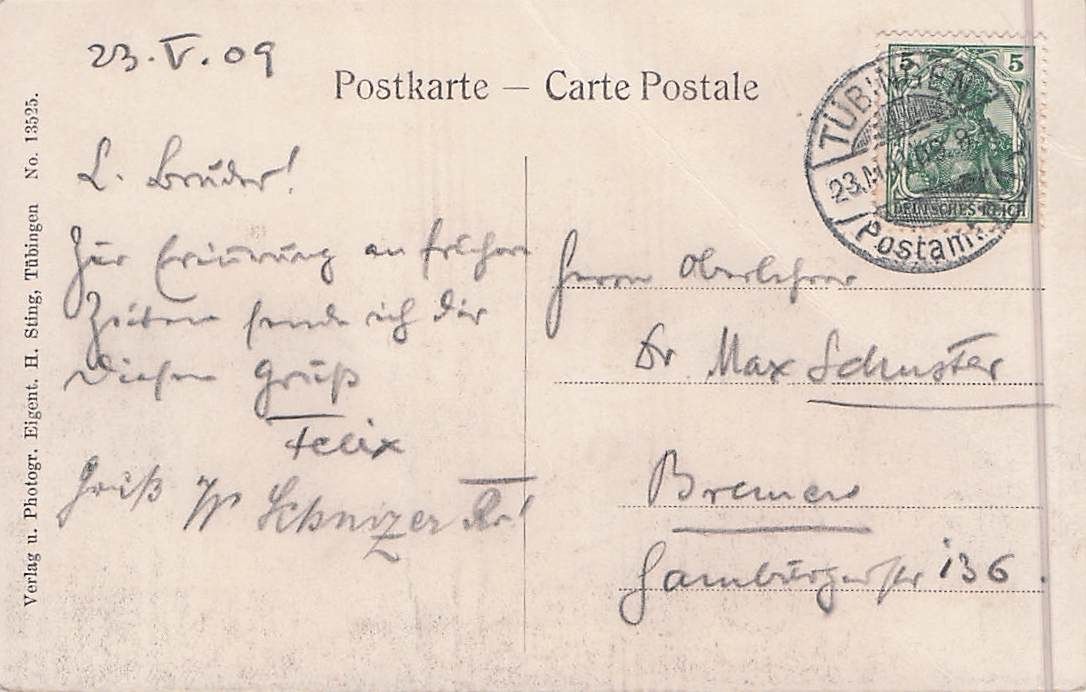 23.V.09
Postkarte — Carte Postale
5 5
DEUTSCHES REICH
TÜBINGEN
23.MAI.09. 8
Postamt
L. Bruder!
Zur Erinnerung an frühere
Zeiten sende ich dir
diesen Gruß
Felix
Gruß W Schnizer
Herrn Oberlehrer
Dr Max Schuster
Bremen
Hamburgerstr 136.
Verlag u. Photogr. Eigent. H. Sting, Tübingen No. 13525.